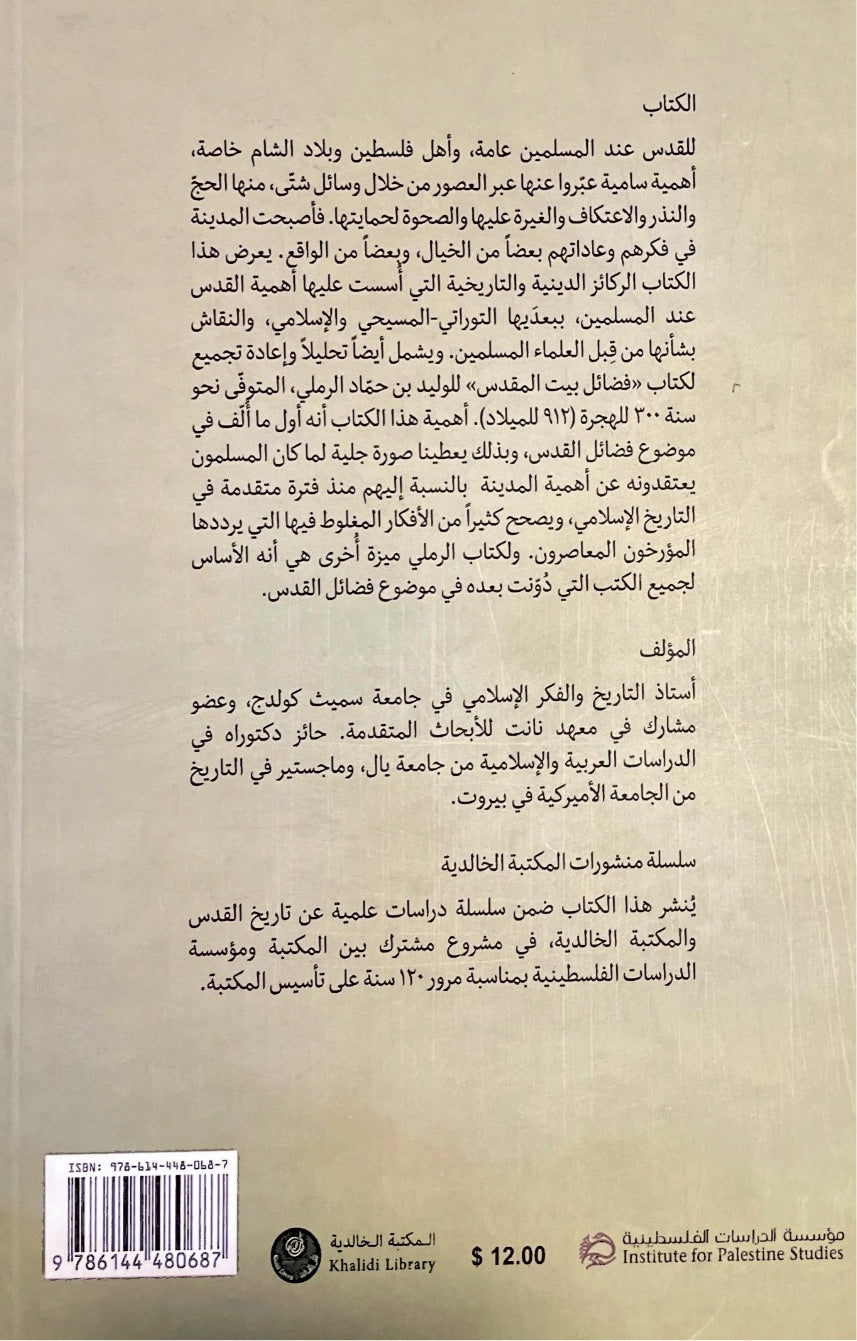 الكتاب
للقدس عند المسلمين عامة، وأهل فلسطين وبلاد الشام خاصة،
أهمية سامية عبّروا عنها عبر العصور من خلال وسائل شتّى، منها الحجّ
والنذر والاعتكاف والغيرة عليها والصحوة لحمايتها. فأصبحت المدينة
في فكرهم وعاداتهم بعضاً من الخيال، وبعضاً من الواقع. يعرض هذا
الكتاب الركائز الدينية والتاريخية التي أُسست عليها أهمية القدس
عند المسلمين، ببعدَيها التوراتي-المسيحي والإسلامي، والنقاش
بشأنها من قِبل العلماء المسلمين. ويشمل أيضاً تحليلاً وإعادة تجميع
لكتاب «فضائل بيت المقدس» للوليد بن حمّاد الرملي، المتوفّى نحو
سنة ٣٠٠ للهجرة (٩١٢ للميلاد). أهمية هذا الكتاب أنه أول ما أُلّف في
موضوع فضائل القدس، وبذلك يعطينا صورة جلية لما كان المسلمون
يعتقدونه عن أهمية المدينة بالنسبة إليهم منذ فترة متقدمة في
التاريخ الإسلامي، ويصحح كثيراً من الأفكار المغلوط فيها التي يرددها
المؤرخون المعاصرون. ولكتاب الرملي ميزة أُخرى هي أنه الأساس
لجميع الكتب التي دُوّنت بعده في موضوع فضائل القدس.
المؤلف
أستاذ التاريخ والفكر الإسلامي في جامعة سميث كولدج، وعضو
مشارك في معهد نانت للأبحاث المتقدمة. حائز دكتوراه في
الدراسات العربية والإسلامية من جامعة يال، وماجستير في التاريخ
من الجامعة الأميركية في بيروت.
سلسلة منشورات المكتبة الخالدية
يُنشر هذا الكتاب ضمن سلسلة دراسات علمية عن تاريخ القدس
والمكتبة الخالدية، في مشروع مشترك بين المكتبة ومؤسسة
الدراسات الفلسطينية بمناسبة مرور ١٢٠ سنة على تأسيس المكتبة.
ISBN: 978-614-448-068-7
9 786144 480687
المكتبة الخالدية
Khalidi Library
$ 12.00
مؤسسة الدراسات الفلسطينية
Institute for Palestine Studies